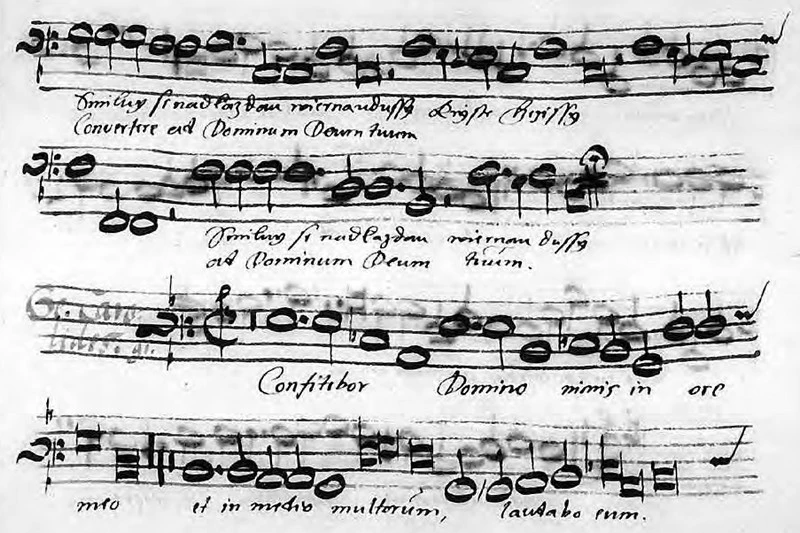 Smiluy se nad kazdau wiernau dussy Kryste
Convertere ad Dominum Deum tuum
Smiluy se nad kazdau wiernau dussy
ad Dominum Deum tuum.
Confitibor Domino nimis in ore
meo et in medio multorum, laudabo eum.